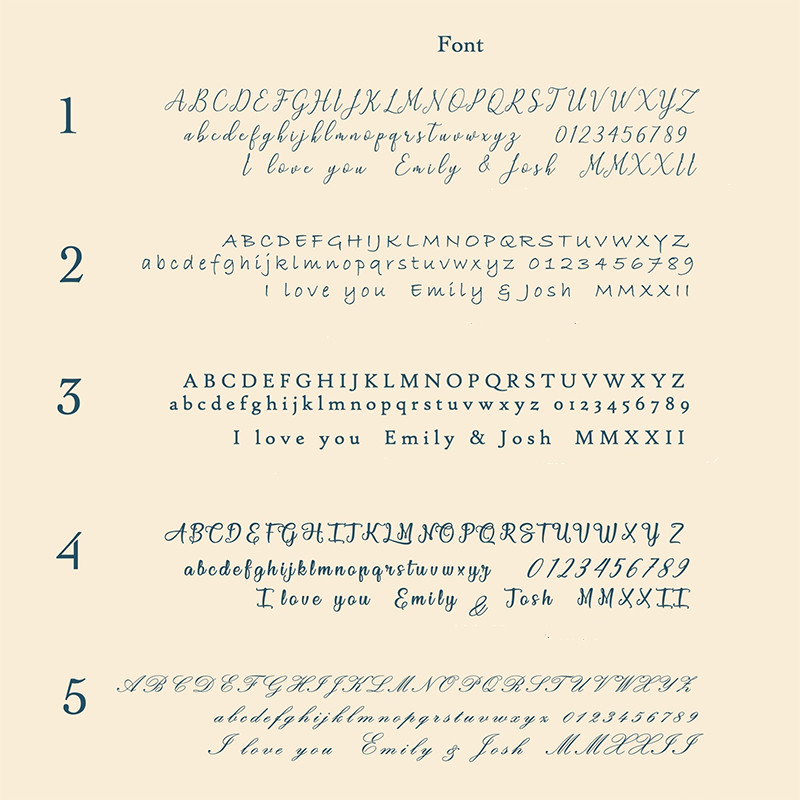 Font
1
ABCDEFGHIJKLMNOPQRSTUVWXYZ
abcdefghijklmnopqrstuvwxyz 0123456789
I love you Emily & Josh MMXXII
2
ABCDEFGHIJKLMNOPQRSTUVWXYZ
abcdefghijklmnopqrstuvwxyz 0123456789
I love you Emily & Josh MMXXII
3
ABCDEFGHIJKLMNOPQRSTUVWXYZ
abcdefghijklmnopqrstuvwxyz 0123456789
I love you Emily & Josh MMXXII
4
ABCDEFGHIJKLMNOPQRSTUVWXYZ
abcdefghijklmnopqrstuvwxyz 0123456789
I love you Emily & Josh MMXXII
5
ABCDEFGHIJKLMNOPQRSTUVWXYZ
abcdefghijklmnopqrstuvwxyz 0123456789
I love you Emily & Josh MMXXII